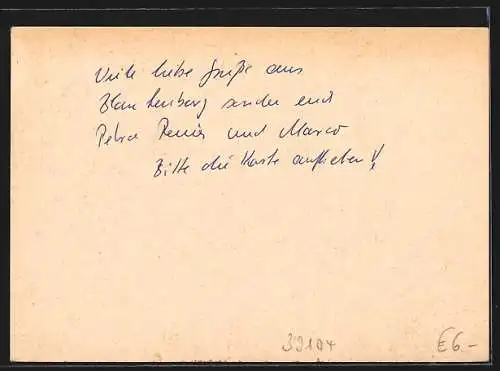 Viele liebe Grüße aus
Blankenberg senden euch
Petra Renier und Marco
Bitte die Karte aufheben!
39104
€6.-